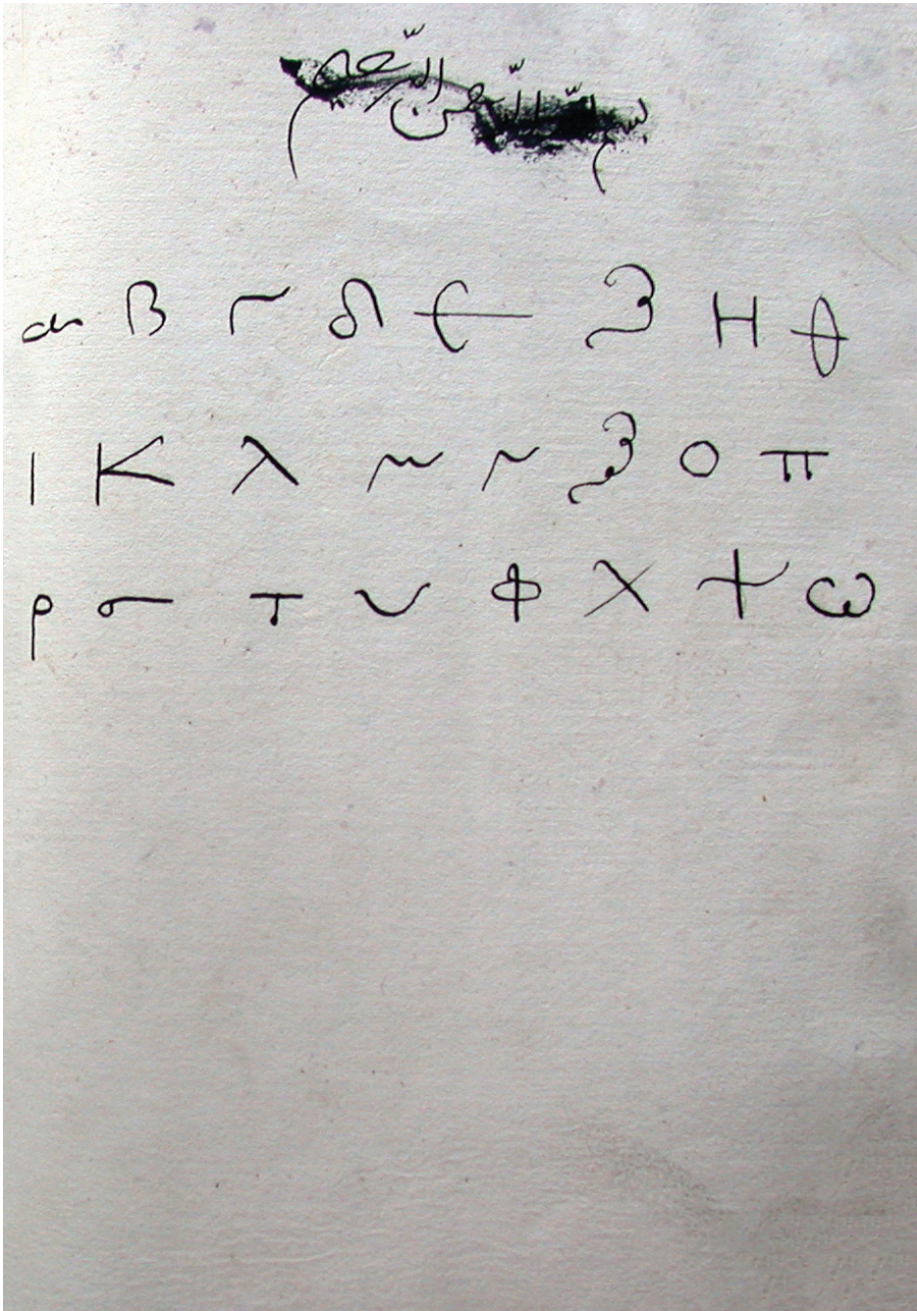 بسم الله الرحمن الرحيم
α β γ δ ε ζ η θ
ι κ λ μ ν ξ ο π
ρ σ τ υ φ χ ψ ω